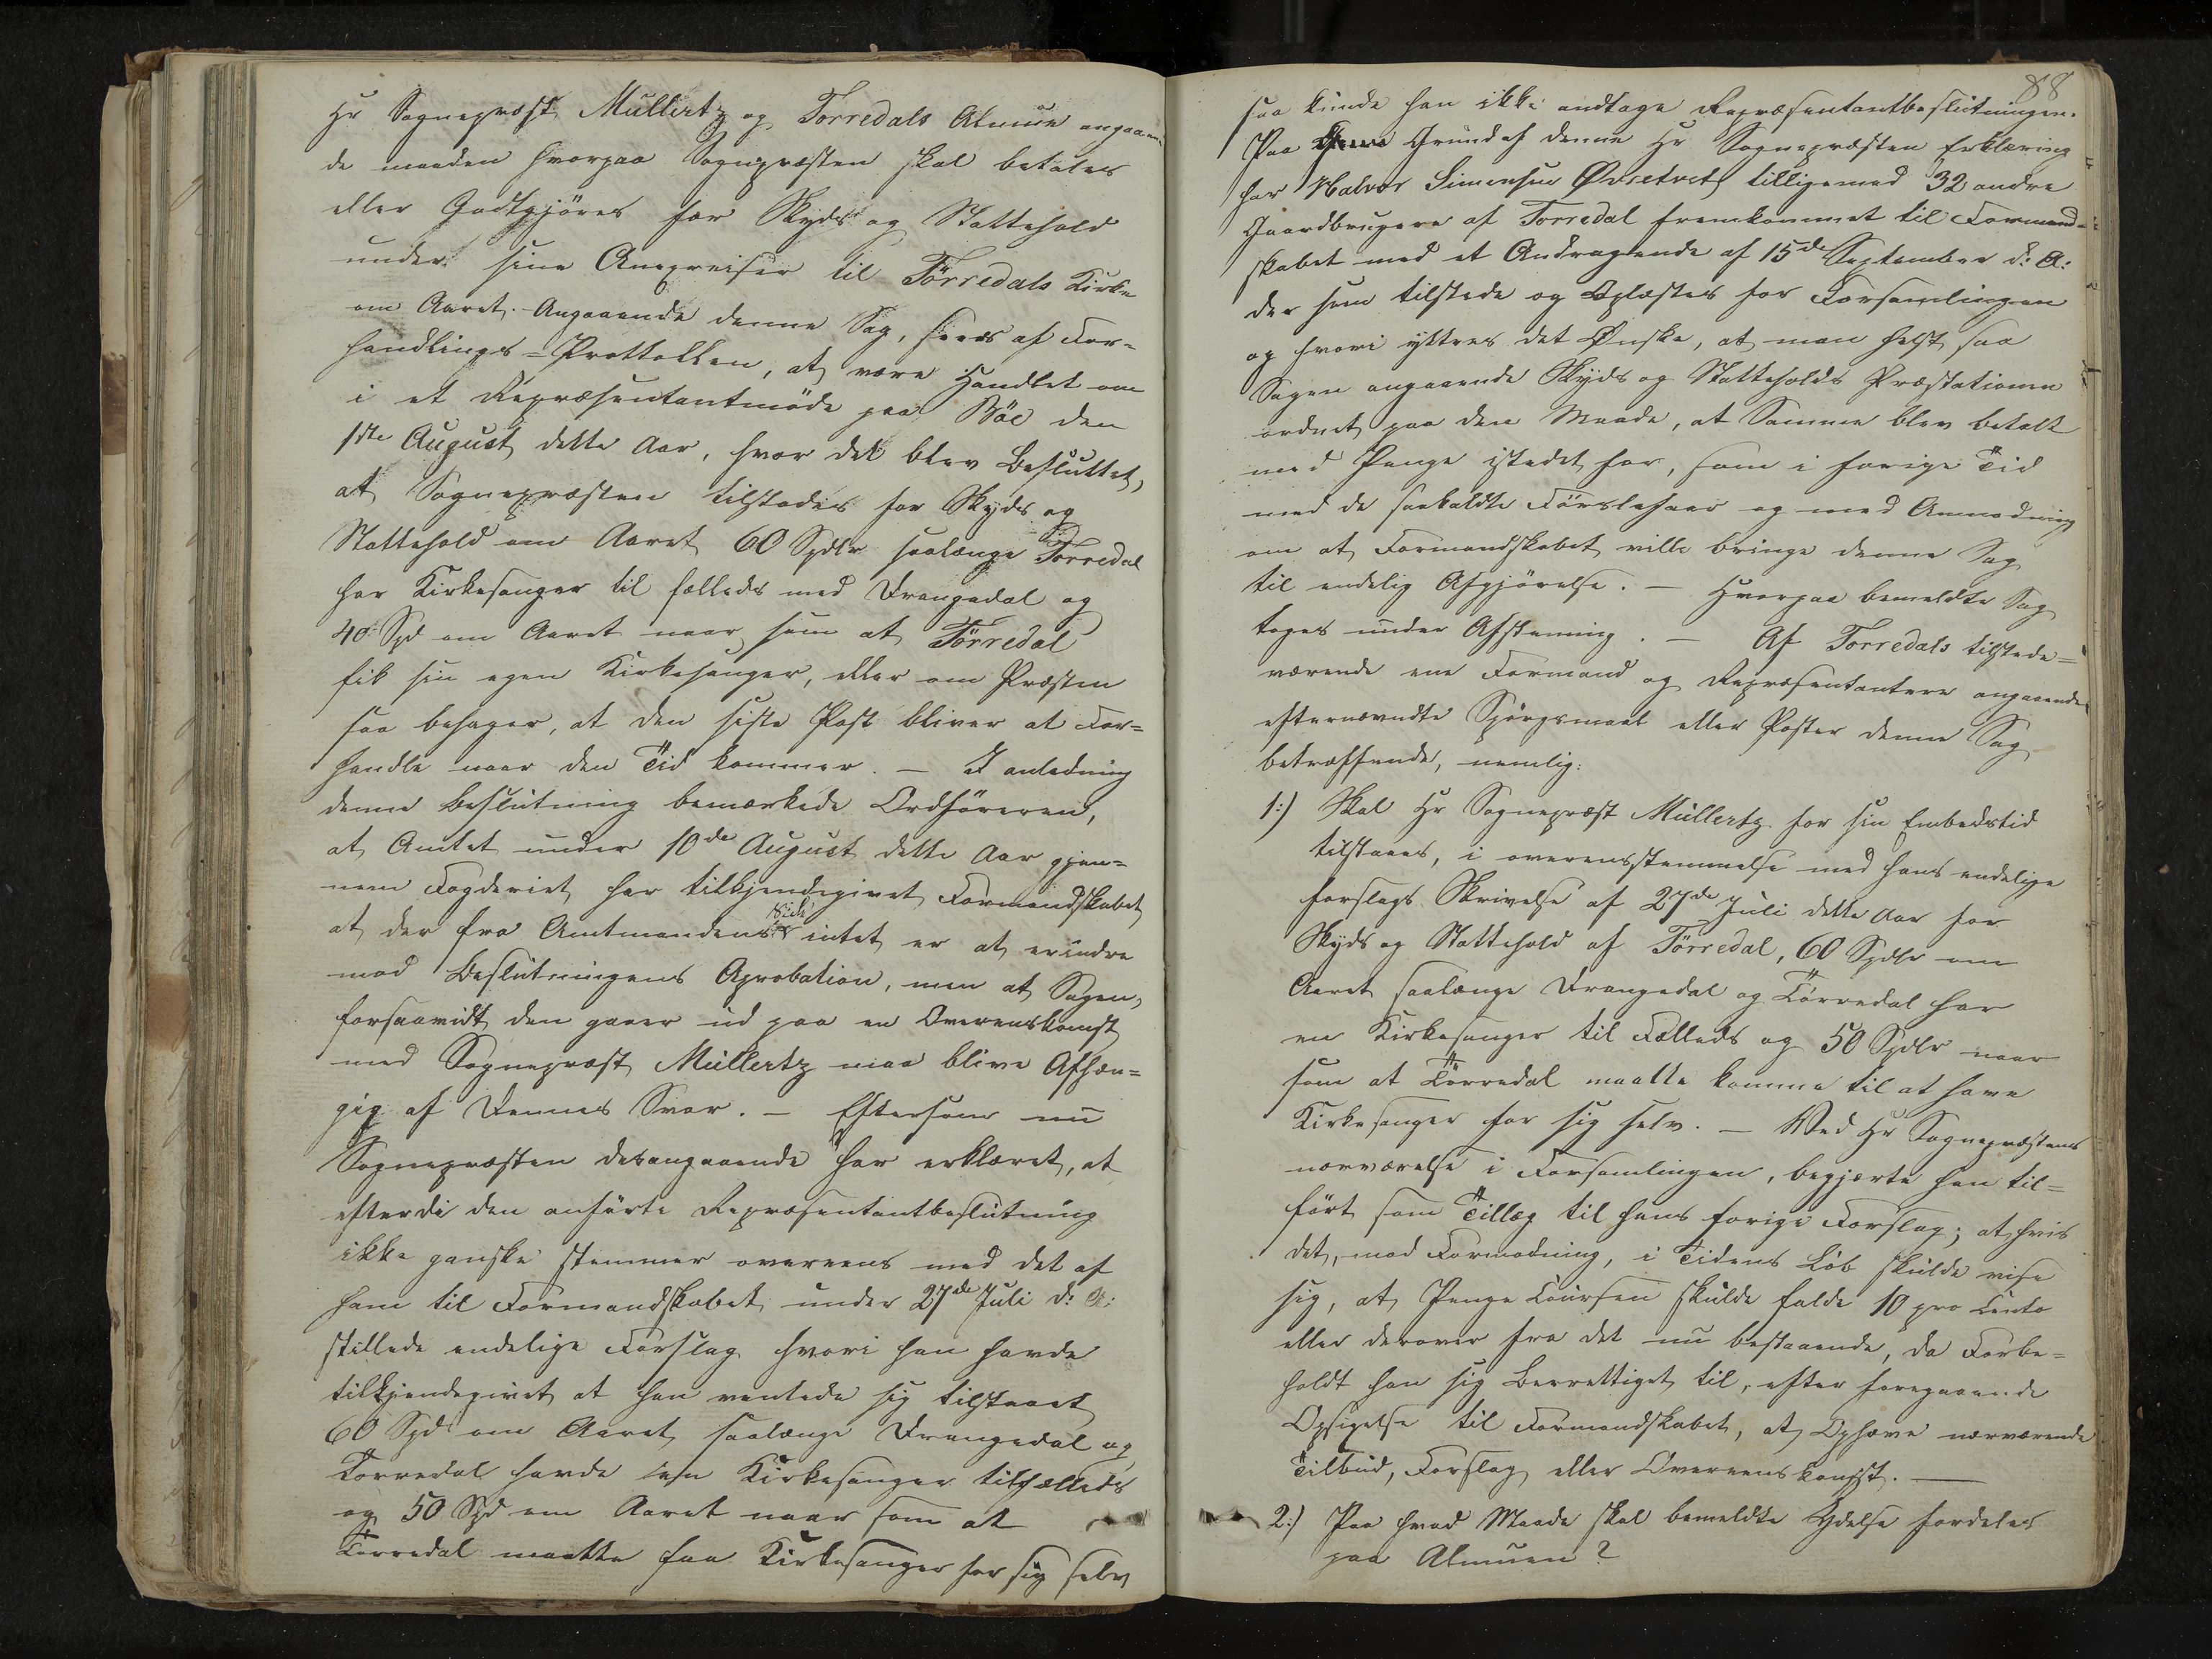 Hr Sognepræst Müllertz og Torredals Almue angaaen-
de maaden hvorpaa Sognepræsten skal betales
eller Godtgjöres for Skyds og Stattehold
under sine Anexreiser til Törredals Kirke
om Aaret. Angaaende denne Sag, sees af For-
handlings-Prottollen, at være Handlet om
i et Repræsentantmöde paa Böe den
1ste August dette Aar, hvor det blev Besluttet,
at Sognepræsten tilstodes for Skyds og
Stattehold om Aaret 60 Spdlr saalænge Törredal
har Kirkesanger til fælleds med Drangedal og
40 Spd om Aaret naar som at Törredal
fik sin egen Kirkesanger, eller om Præsten
saa behager, at den siste Post bliver at For-
handle naar den Tid kommer. — I anledning
denne Beslutning bemærkede Ordföreren,
at Amtet under 10de August dette Aar gjen-
nem Fogderiet har tilkjendegivet Formandskabet
at der fra Amtmandens Side intet er at erindre
mod Beslutningens Aprobation, men at Sagen,
forsaavidt den gaaer ud paa en Overenskomst
med Sognepræst Müllertz maa blive Afhæn-
gig af Dennes Svar. — Eftersom nu
Sognepræsten desangaaende har erklæret, at
efterdi den anförte Repræsentantbeslutning
ikke ganske stemmer overeens med det af
ham til Formandskabet under 27de Juli d: A:
stillede endelige Forslag hvori han havde
tilkjendegivet at han ventede sig tilstaaet
60 Spd om Aaret saalænge Drangedal og
Torredal havde een Kirkesanger tilfælleds
og 50 Spd om Aaret naar som at
Törredal maatte faa Kirkesanger for sig selv
88
saa kunde han ikke andtage Repræsentantbeslutningen.
Paa Grund af denne Hr Sognepræsten Erklæring
har Halvor Simensen Øvsetvet tilligemed 32 andre
Gaardbrugere af Torredal fremkommet til Formand-
skabet med et Andragende af 15de September d: A:
der som tilstede og Oplæstes for Forsamlingen
og hvori yttres det Ønske, at man helst saa
Sagen angaaende Skyds og Statteholds Præstationen
ordnet paa den Maade, at Samme blev betalt
med Penge istedet for, som i forige Tid
med de saakaldte Förslehaar og med Anmodning
om at Formandskabet ville bringe denne Sag
til endelig Afgjörelse. — Hvorpaa bemeldte Sag
toges under Afstemning. — Af Torredals tilstede-
værende ene Formand og Repræsentantere angaaende
efternævndte Spörgsmaal eller Poster denne Sag
betræffende, nemlig:
1:) Skal Hr Sognepræst Müllertz for sin Embedstid
tilstaaes, i overensstemmelse med hans endelige
forslags Skrivelse af 27de Juli dette Aar for
Skyds og Stattehold af Törredal, 60 Spdlr om
Aaret saalænge Drangedal og Törredal har
en Kirkesanger til Fælleds og 50 Spdlr naar
som at Törredal maatte komme til at have
Kirkesanger for sig selv. — Ved Hr Sognepræstens
nærværelse i Forsamlingen, begjærte han til-
fört som Tillæg til hans forige Forslag; at hvis
det, mod Formodning, i Tidens Löb skulde vise
sig, at Penge Coursen skulde falde 10 pro Cento
eller derover fra det nu bestaaende, da Forbe-
holdt han sig Berrettiget til, efter foregaaende
Opsigelse til Formandskabet, at Ophæve nærværende
Tilbud, Forslag eller Overeenskomst. —
2:) Paa hvad Maade skal bemeldte Ydelse fordeles
paa Almuen?